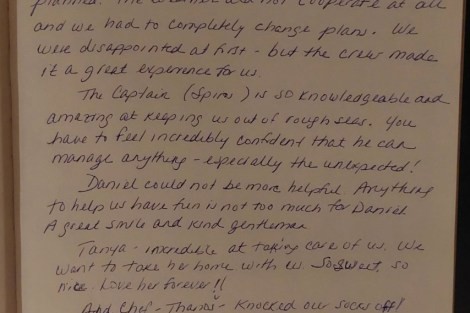 planned. The weather did not cooperate at all
and we had to completely change plans. We
were disappointed at first - but the crew made
it a great experience for us.
The Captain (Spiros) is so knowledgeable and
amazing at keeping us out of rough seas. You
have to feel incredibly confident that he can
manage anything - especially the unexpected!
Daniel could not be more helpful. Anything
to help us have fun is not too much for Daniel.
A great smile and kind gentleman
Tanya - incredible at taking care of us. We
want to take her home with us. So sweet, so
nice. Love her forever!!
And Chef - Thanos - knocked our socks off!